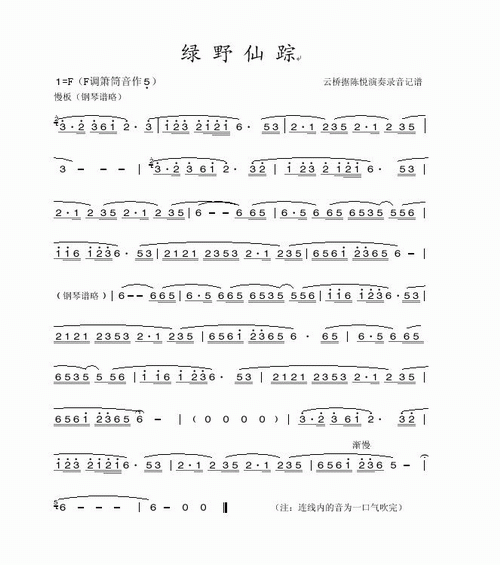 绿野仙踪
1=F（F调箫筒音作5） 云桥据陈悦演奏录音记谱
慢板（钢琴谱略）
3·2 361 2·3 | 123 2121 6·53 | 2·1 235 2·1 235 |
3 - - - | 3·2 361 2·32 | 123 2121 6·5 |
2·1 235 2·1 235 | 6 - - 665 | 6·5 665 6535 556 |
116 1236·53 | 2121 2353 2·1 235 | 6561 2365 6 - |
（钢琴谱略） | 6 - - 665 | 6·5 665 6535 556 | 116 1236·53 |
2121 2353 2·1 235 | 6561 2365 6· 65 | 6·5 665 |
6535 5 56 | 116 1236·53 | 2121 2353 2·1 235 |
6561 2365 6 - | (0 0 0 0) | 3·2 361 2·32 |
渐慢
123 2121 6·53 | 2·1 235 2·1 235 | 6561 236 5 - |
6 - - - | 6 - 0 0 ‖ （注：连线内的音为一口气吹完）